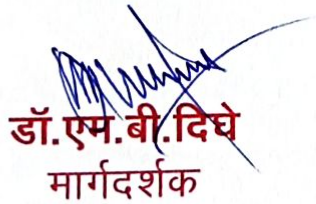 डॉ.एम.बी.दिघे
मार्गदर्शक